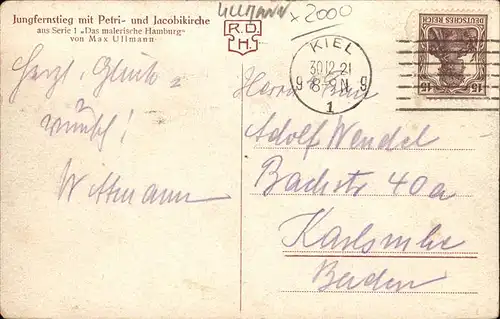 Jungfernstieg mit Petri- und Jacobikirche
aus Serie 1 „Das malerische Hamburg“
von Max Ullmann
ULLMANN x 2000
R.D.
H.
KIEL
30.12.21
8-9 N
g g
1
DEUTSCHES REICH
15 15
Herzl. Glück-
wünsch!
W. Ttmann
Herrn
Adolf Wendel
Bachstr 40a
Karlsruhe
Baden